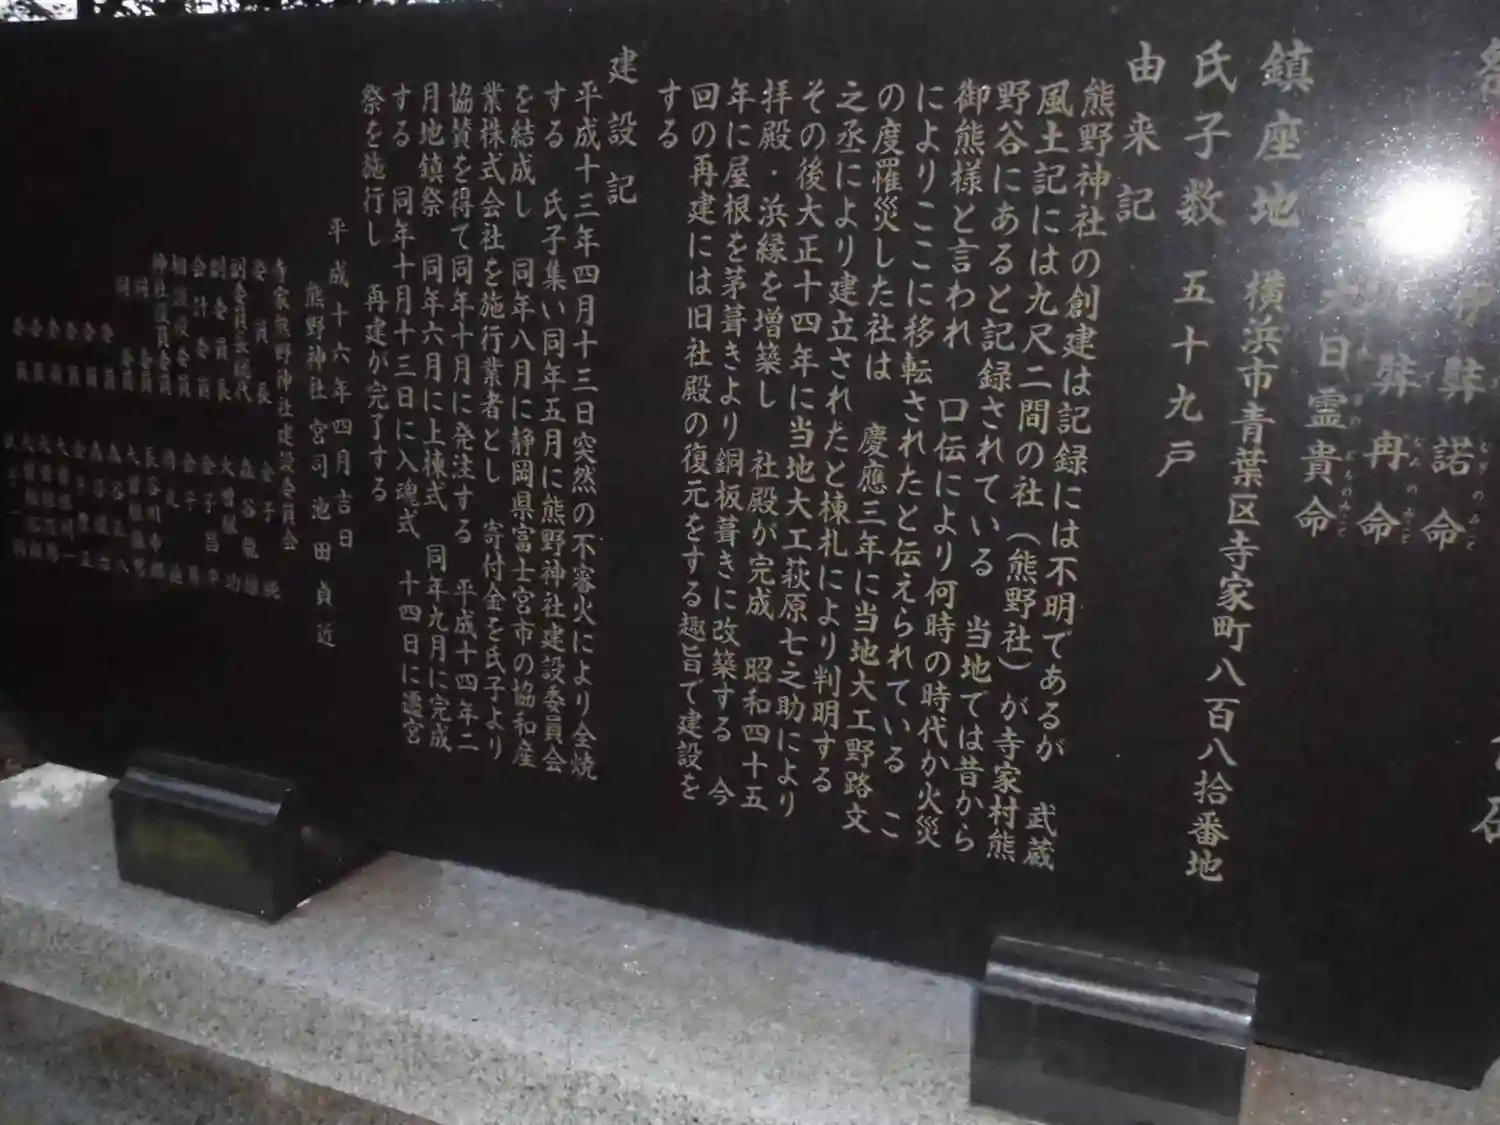 伊弉諾命
弉冉命
大日霊貴命
鎮座地 横浜市青葉区寺家町八百八拾番地
氏子数 五十九戸
由来記
熊野神社の創建は記録には不明であるが 武蔵
風土記には九尺二間の社（熊野社）が寺家村熊
野谷にあると記録されている 当地では昔から
御熊様と言われ 口伝により何時の時代か火災
によりここに移転されたと伝えられている こ
の度罹災した社は 慶應三年に当地大工野路文
之丞により建立されたと棟札により判明する
その後大正十四年に当地大工萩原七之助により
拝殿・浜縁を増築し 社殿が完成 昭和四十五
年に屋根を茅葺きより銅板葺きに改築する 今
回の再建には旧社殿の復元をする趣旨で建設を
する
建設記
平成十三年四月十三日突然の不審火により全焼
する 氏子集い同年五月に熊野神社建設委員会
を結成し 同年八月に静岡県富士宮市の協和産
業株式会社を施行業者とし 寄付金を氏子より
協賛を得て同年十月に発注する 平成十四年二
月地鎮祭 同年六月に上棟式 同年九月に完成
する 同年十月十三日に入魂式 十四日に遷宮
祭を施行し 再建が完了する
平成十六年四月吉日
熊野神社 宮司 池田貞近
寺家熊野神社建設委員会
委員長 金子
副委員長総代 森谷
副委員長 大曽根 功
会計委員 金子昌